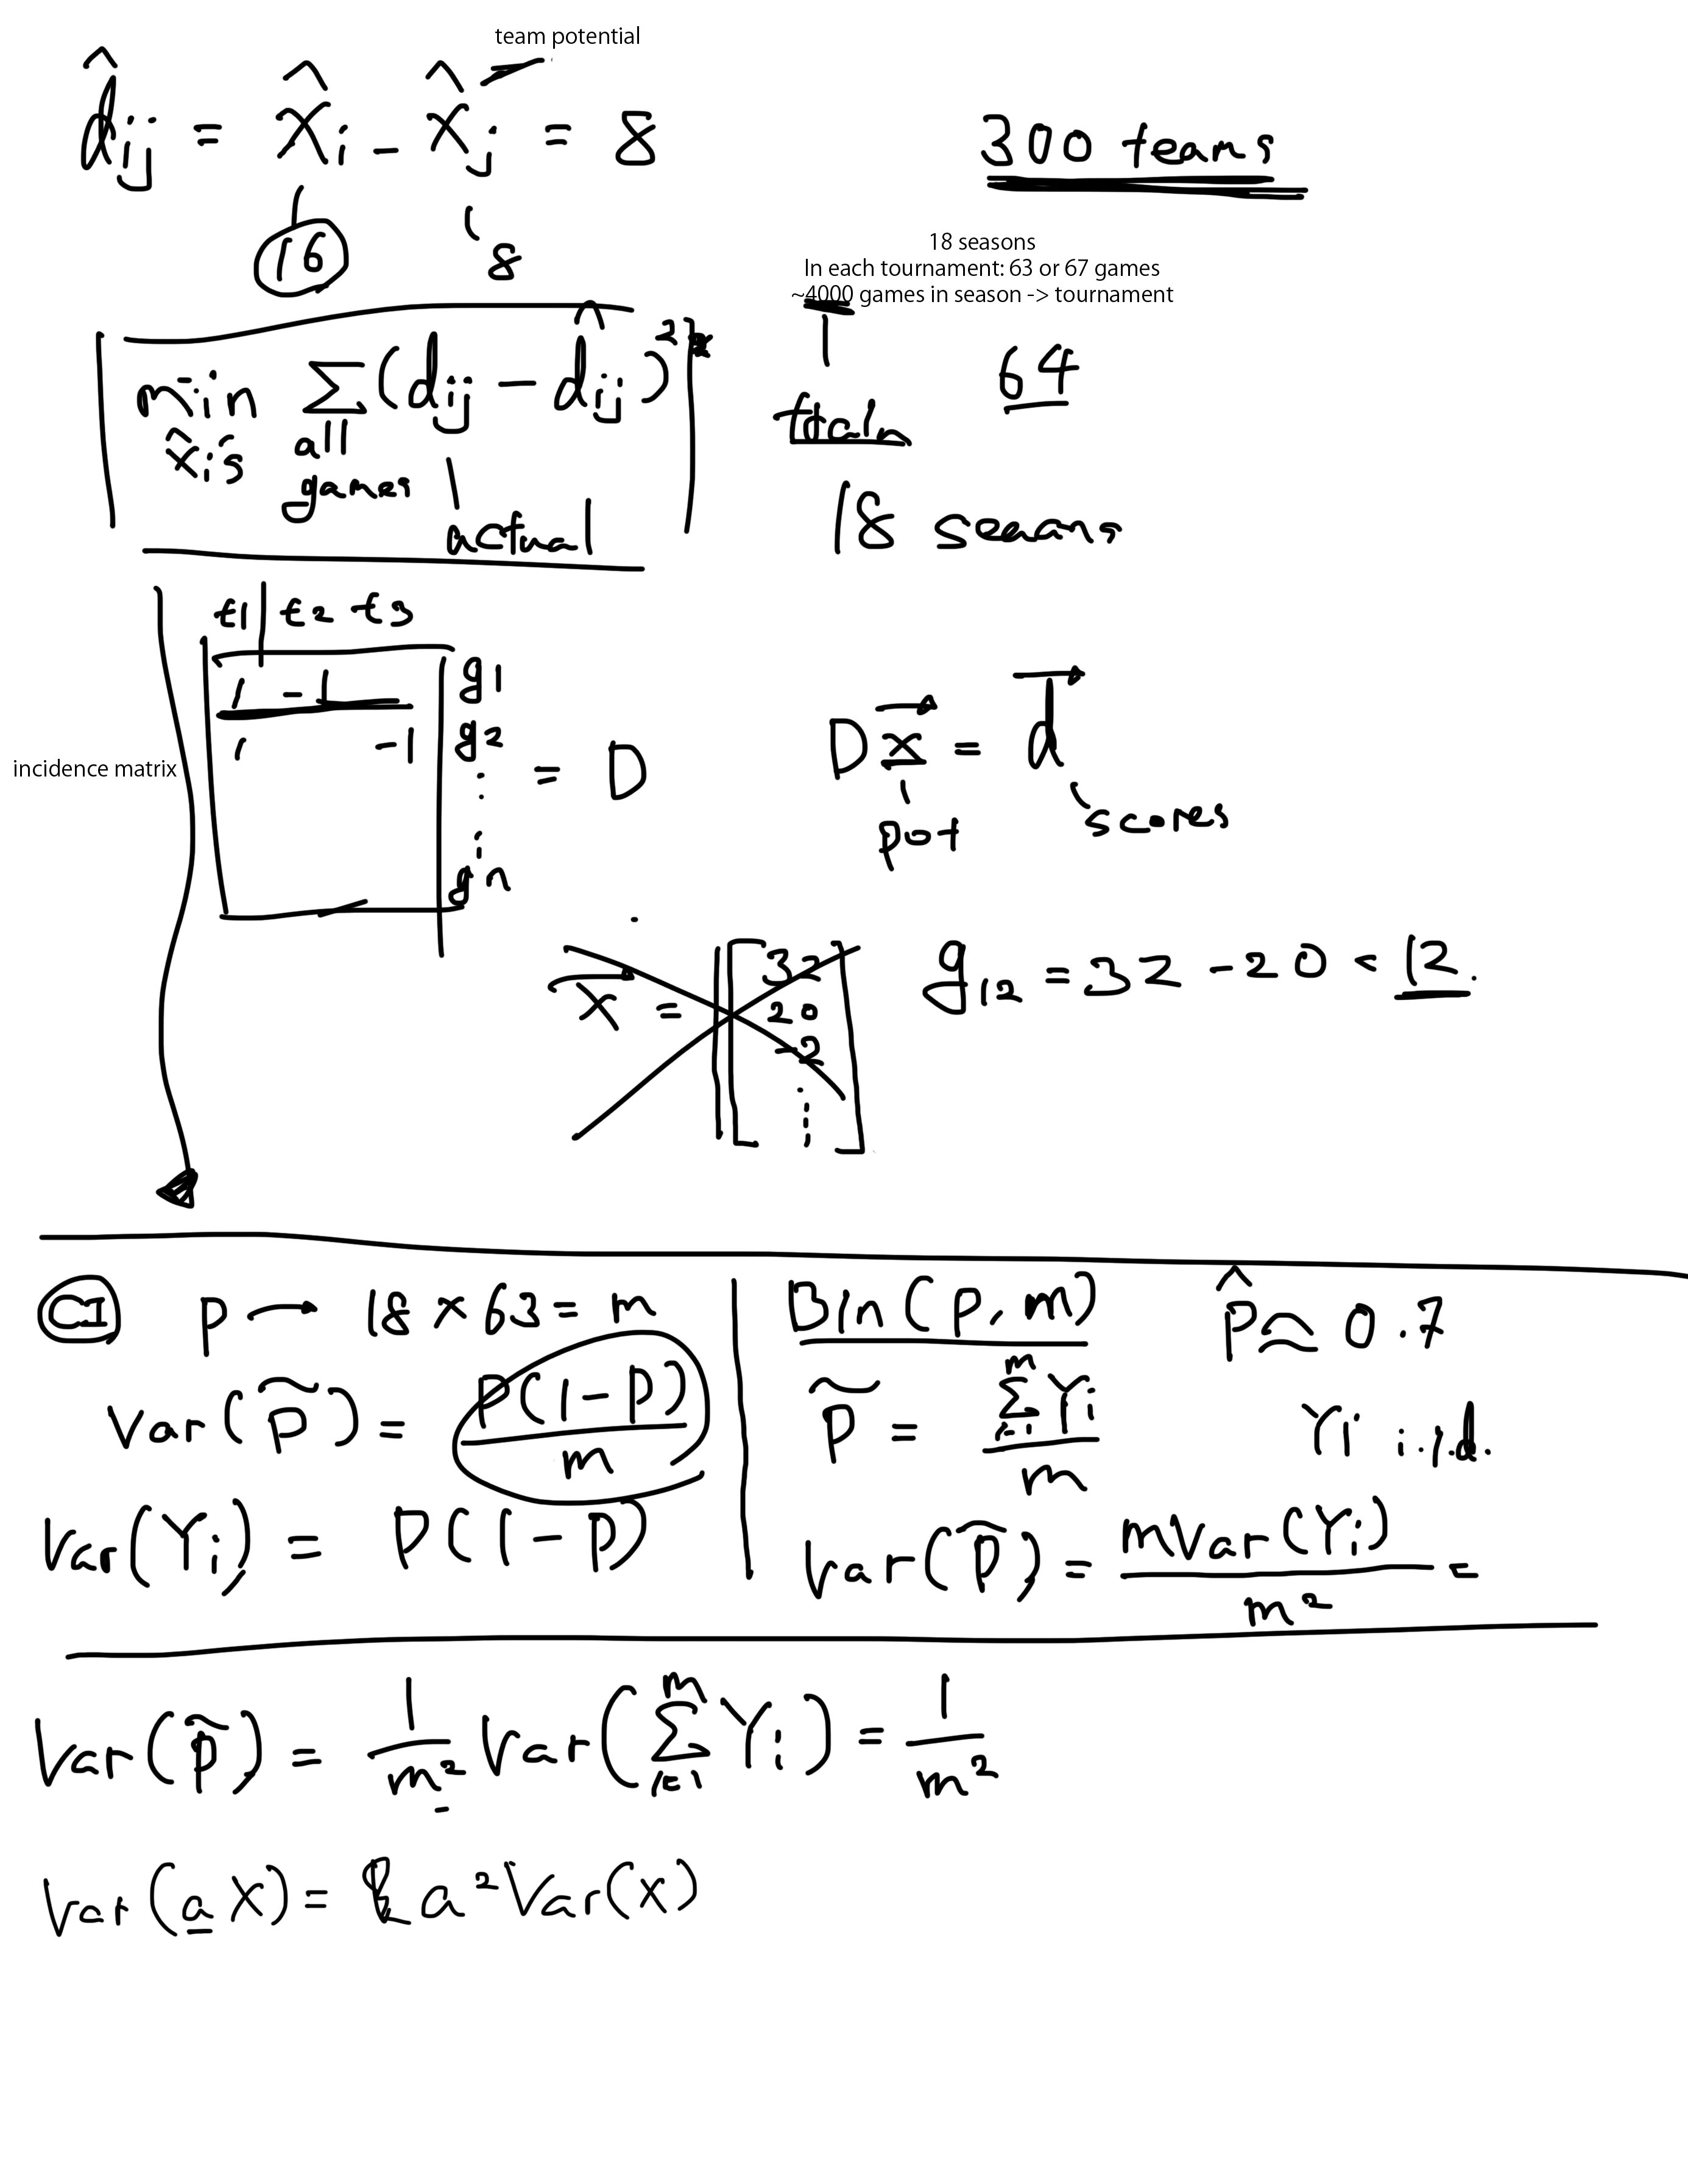 team potential
d̂ij = x̂i - x̂j = 8
16 8
300 teams
18 seasons
In each tournament: 63 or 67 games
~4000 games in season -> tournament
min Σ (dij - d̂ij)²
x̂i's all
games
actual
train
64
18 seasons
t1 t2 t3
1 -1 g1
1 -1 g2
⋮
gn
= D
incidence matrix
D x⃗ = d⃗
pot
scores
x⃗ = [32
20
-2
⋮]
g12 = 32 - 20 = 12.
CI p → 18 × 63 = m
Var(p̃) = p(1-p)/m
Var(Yi) = p(1-p)
Bin(p, m) p̂ ≈ 0.7
p̃ = Σ(i=1 to m) Yi / m Yi i.i.d.
Var(p̃) = mVar(Yi)/m² =
Var(p̃) = 1/m² Var(Σ(i=1 to m) Yi) = 1/m²
Var(aX) = a² Var(X)